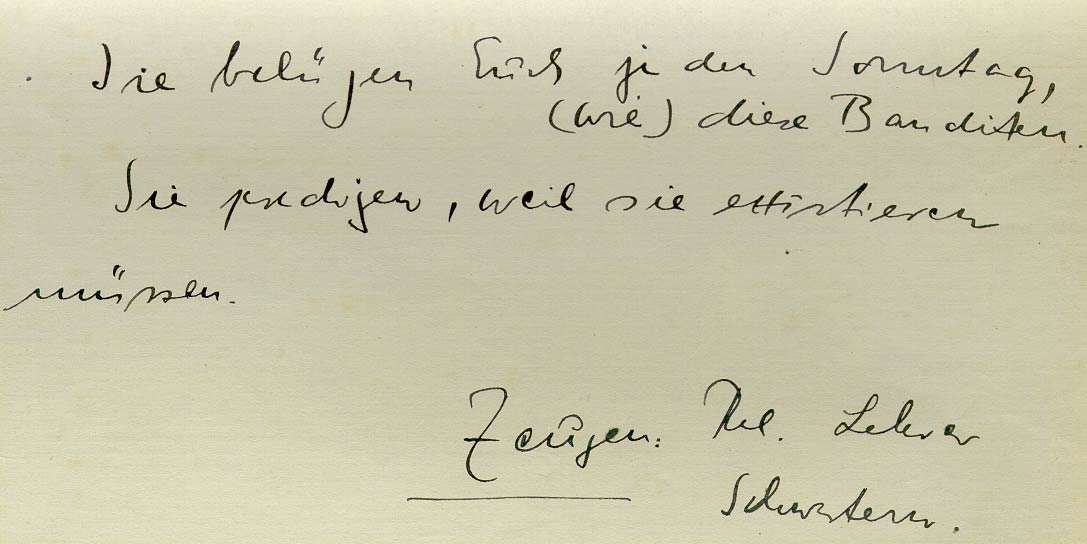 Sie belügen Euch jeden Sonntag,
(wie) diese Banditen.
Sie predigen, weil sie existieren
müssen.
Zeugen: Rel. Lehrer
Schwestern.